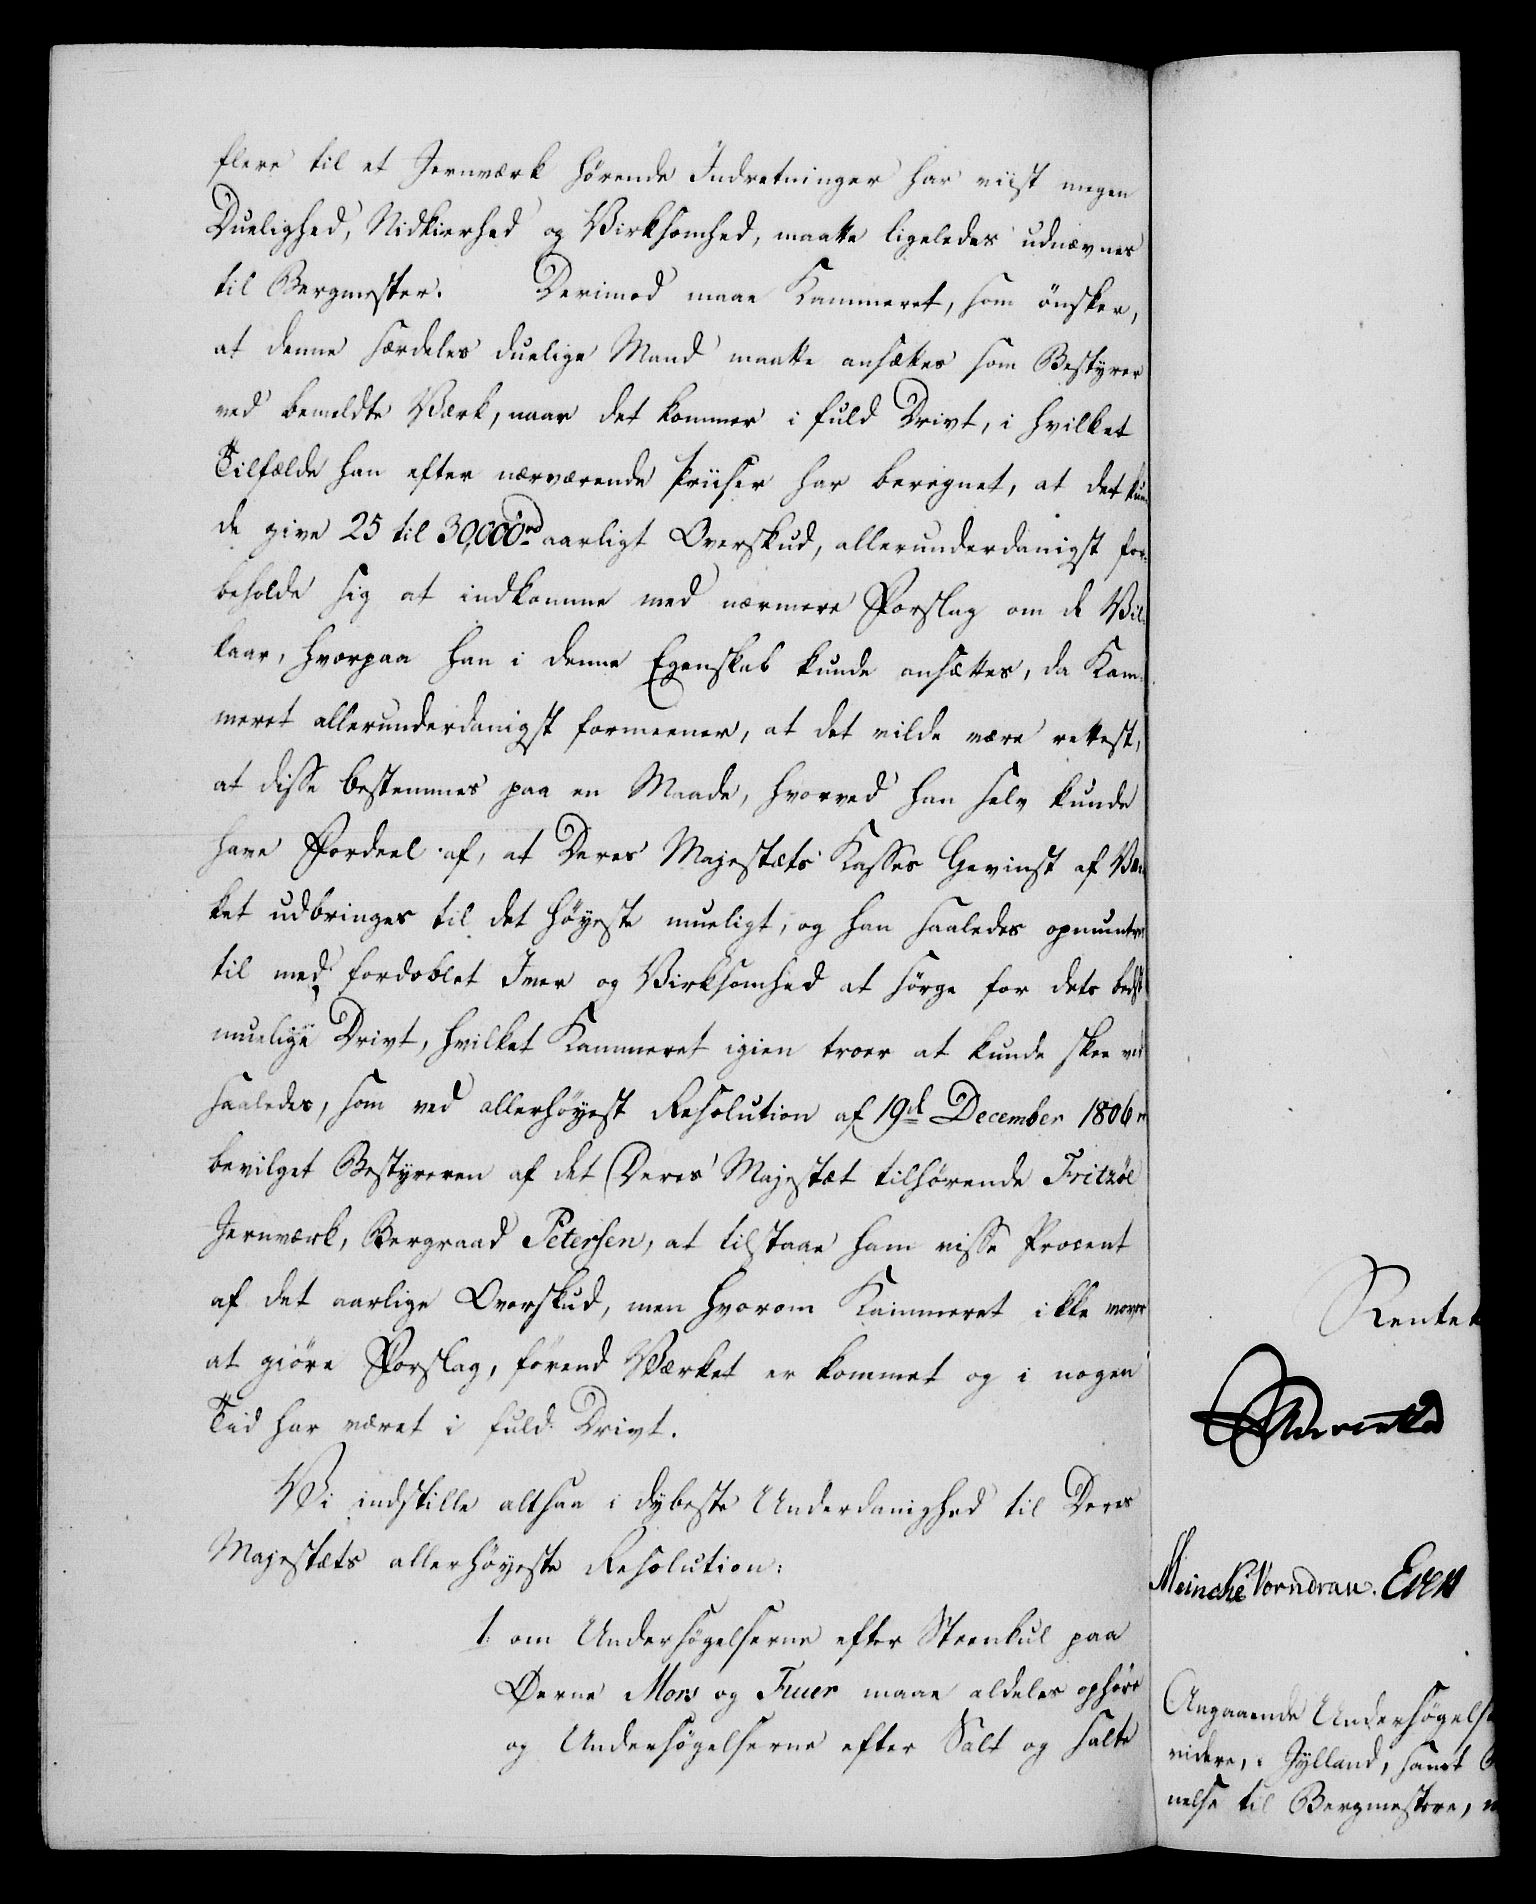 flere til et Jernværk hørende Indretninger har viist megen
Duelighed, Nidkierhed og Virksomhed, maatte ligeledes udnævnes
til Bergmester. Derimod maae Kammeret, som ønsker,
at denne særdeles duelige Mand maatte ansættes som Bestyrer
ved bemeldte Værk, naar det kommer i fuld Drivt, i hvilket
Tilfælde han efter nærværende Priiser har beregnet, at det kun
de give 25 til 30,000 rd aarligt Overskud, allerunderdanigst for-
beholde sig at indkomme med nærmere Forslag om de Vil-
kaar, hvorpaa han i denne Egenskab kunde ansættes, da Kam-
meret allerunderdanigst formeener, at det vilde være rettest,
at disse bestemmes paa en Maade, hvorved han selv kunde
have Fordeel af, at Deres Majestæts Kasses Gevinst af Vær
ket udbringes til det høyeste mueligt, og han saaledes opmuntres
til med fordoblet Iver og Virksomhed at sørge for dets bedst
muelige Drivt, hvilket Kammeret igien troer at kunde skee ved
saaledes, som ved allerhøyest Resolution af 19d December 1806 er
bevilget Bestyreren af det Deres Majestæt tilhørende Fritzöe
Jernværk, Bergraad Petersen, at tilstaae ham visse Procent
af det aarlige Overskud, men hvorom Kammeret ikke vover
at giøre Forslag, førend Værket er kommet og i nogen
Tid har været i fuld Drivt.
Vi indstille altsaa i dybeste Underdanighed til Deres
Majestæts allerhøyeste Resolution:
1. om Undersøgelserne efter Steenkul paa
Øerne Mors og Fuur maae aldeles ophøre
og Undersøgelserne efter Salt og salte
Rentek
Meincke Vorndran.
Angaaende Undersøgelse
videre, i Jylland, samt
nelse til Bergmestere,